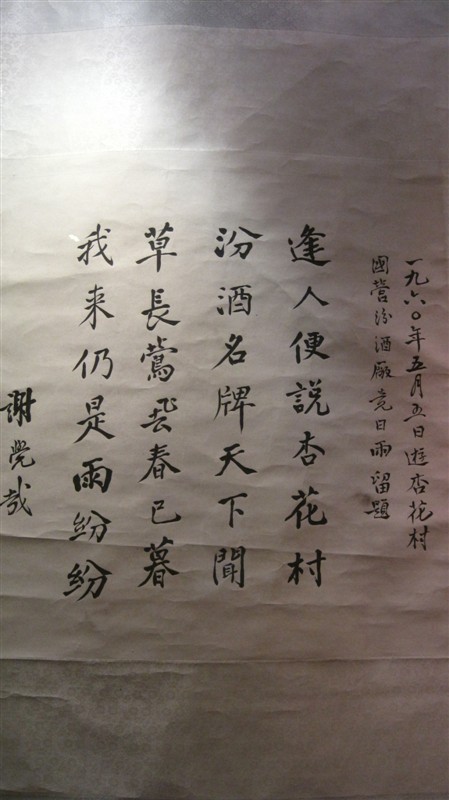 一九六〇年五月五日遊杏花村
國營汾酒廠竟日雨留題
逢人便說杏花村
汾酒名牌天下聞
草長鶯飛春已暮
我来仍是雨紛紛
謝覺哉